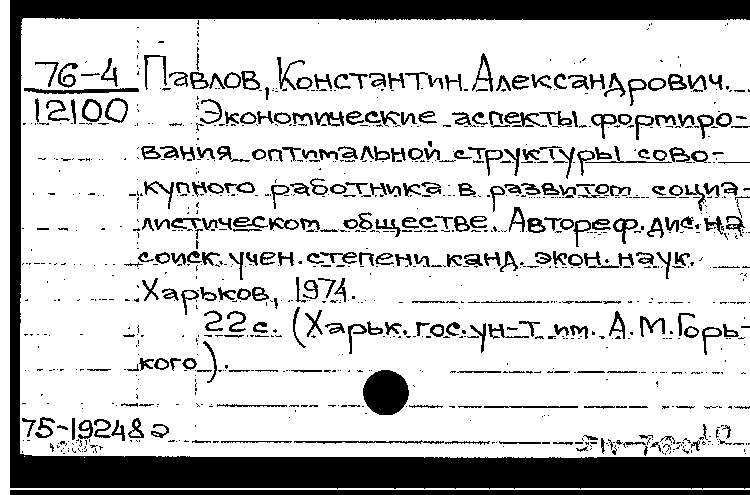 76-4 Павлов, Константин Александрович.
12100 Экономические аспекты формиро-
вания оптимальной структуры сово-
купного работника в развитом социа-
листическом обществе. Автореф. дис. на
соиск. учен. степени канд. экон. наук.
Харьков, 1974.
22 с. (Харьк. гос. ун-т им. А.М. Горь-
кого).
75-19248а